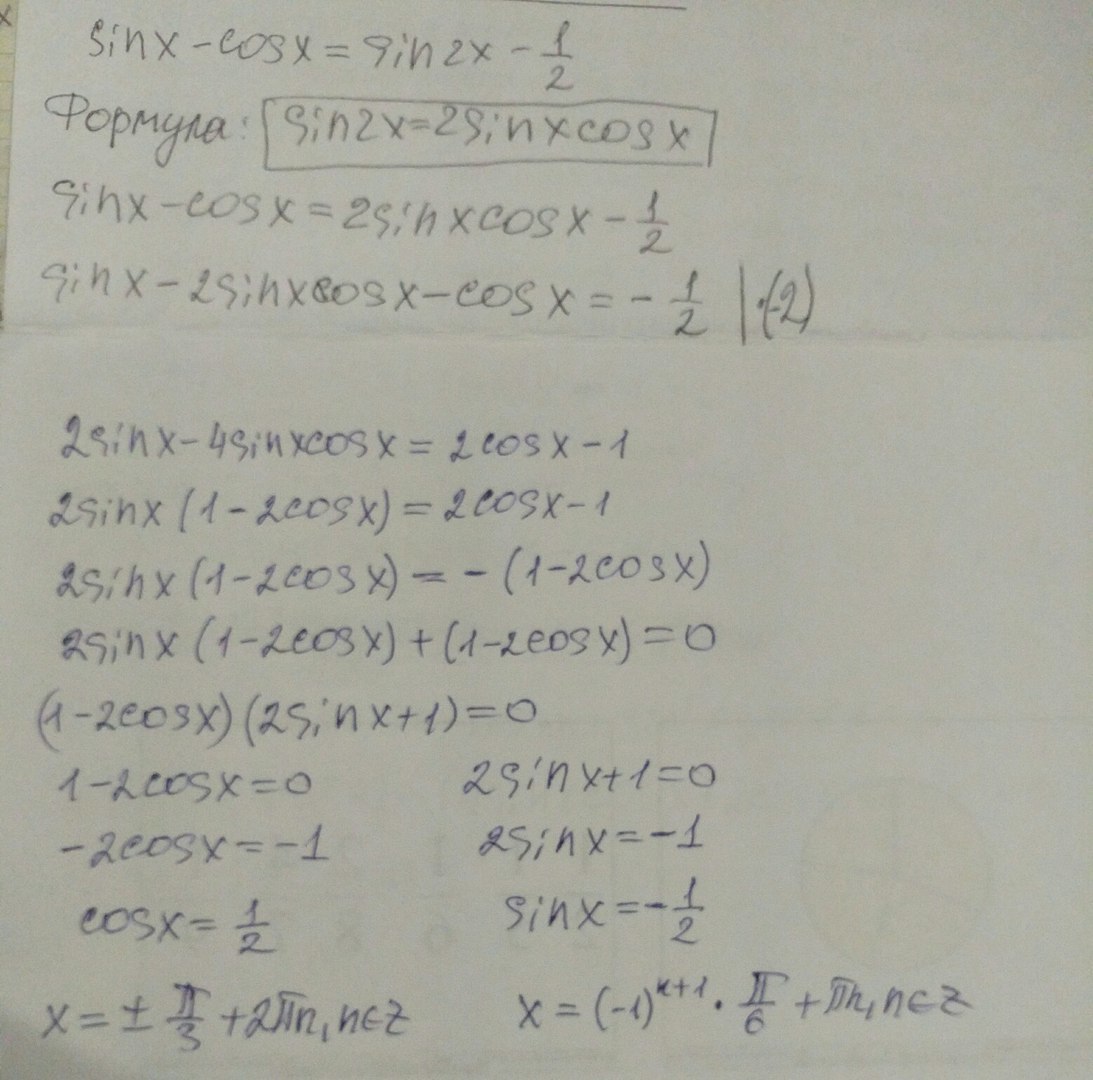 sinx - cosx = sin2x - 1/2
Формула: sin2x=2sinxcosx
sinx - cosx = 2sinxcosx - 1/2
sinx - 2sinxcosx - cosx = - 1/2 | ·(-2)
2sinx - 4sinxcosx = 2cosx - 1
2sinx (1 - 2cosx) = 2cosx - 1
2sinx (1-2cosx) = - (1-2cosx)
2sinx (1-2cosx) + (1-2cosx) = 0
(1-2cosx) (2sinx+1) = 0
1-2cosx=0 2sinx+1=0
-2cosx=-1 2sinx=-1
cosx= 1/2 sinx=- 1/2
x = ± π/3 + 2πn, n∈Z x = (-1)ⁿ⁺¹ · π/6 + πn, n∈Z